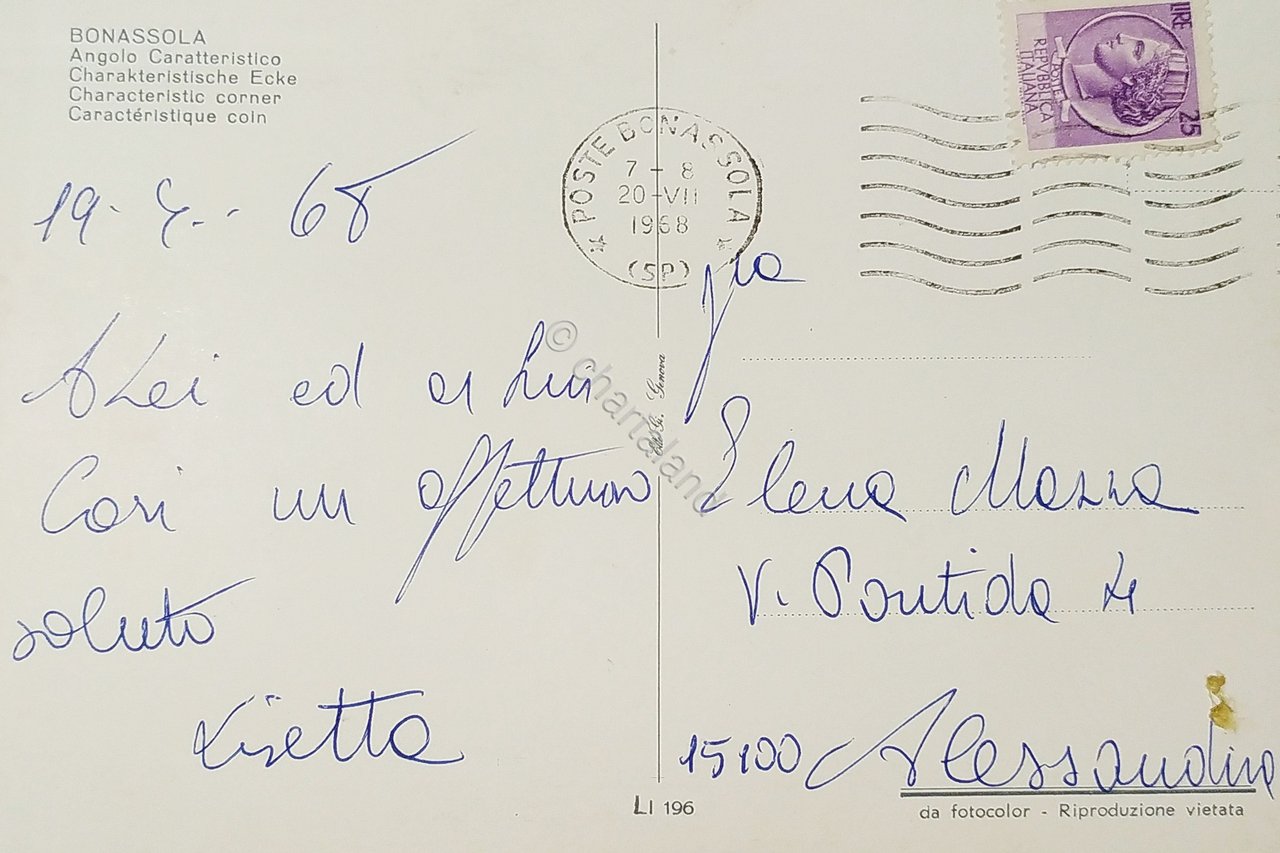 BONASSOLA
Angolo Caratteristico
Charakteristische Ecke
Characteristic corner
Caractéristique coin
19. 7.. 68
A Lei ed ai Suoi
Cari un affettuoso
saluto
Lisetta
LIRE
25
POSTE
REPVBBLICA
ITALIANA
POSTE BONASSOLA
7 - 8
20 - VII
1968
(SP)
Genova
© chartaland
Elena Mazza
V. Pontida 4
15100 Alessandria
LI 196
da fotocolor - Riproduzione vietata